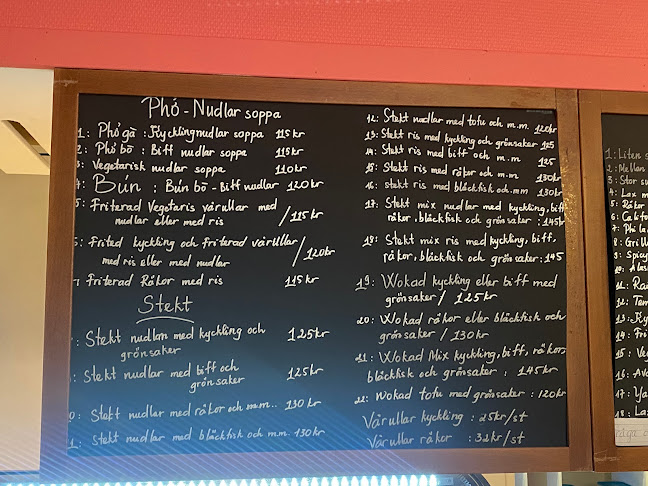 Phó - Nudlar soppa
1: Phó gà : Kycklingnudlar soppa 115 kr
2: Phó bō : Biff nudlar soppa 115kr
3: Vegetarisk nudlar soppa 110 kr
Bún : Bún bō - Biff nudlar 120 kr
5: Friterad Vegetaris vårullar med
nudlar eller med ris / 115 kr
Frited kyckling och friterad vårullar
med ris eller med nudlar / 120kr
Friterad Räkor med ris 115 kr
Stekt
Stekt nudlar med kyckling och
grönsaker 125kr
Stekt nudlar med biff och
grönsaker 125kr
Stekt nudlar med räkor och m.m.. 130 kr
Stekt nudlar med bläckfisk och m.m. 130 kr
12: Stekt nudlar med tofu och m.m. 120kr
13: Stekt ris med kyckling och grönsaker 125
14: Stekt ris med biff och m.m 125
15: Stekt ris med räkor och m.m 130kr
16: stekt ris med bläckfisk och mm 130kr
17: Stekt mix nudlar med kyckling, biff,
räkor, bläckfisk och grönsaker : 145kr
18: Stekt mix ris med kyckling, biff,
räkor, bläckfisk och grönsaker : 145
19: Wokad kyckling eller biff med
grönsaker / 125kr
20: Wokad räkor eller bläckfisk och
grönsaker / 130kr
21: Wokad Mix kyckling, biff, räkor,
bläckfisk och grönsaker : 145kr
22: Wokad tofu med grönsaker : 120kr
Vårullar kyckling : 25kr/st
Vårullar räkor : 32kr/st
1: Liten
2: Mellan
3: Stor
4: Lax
5: Räkor
6:
7:
8:
9:
10:
11:
12:
13:
14:
15:
16:
17:
18: